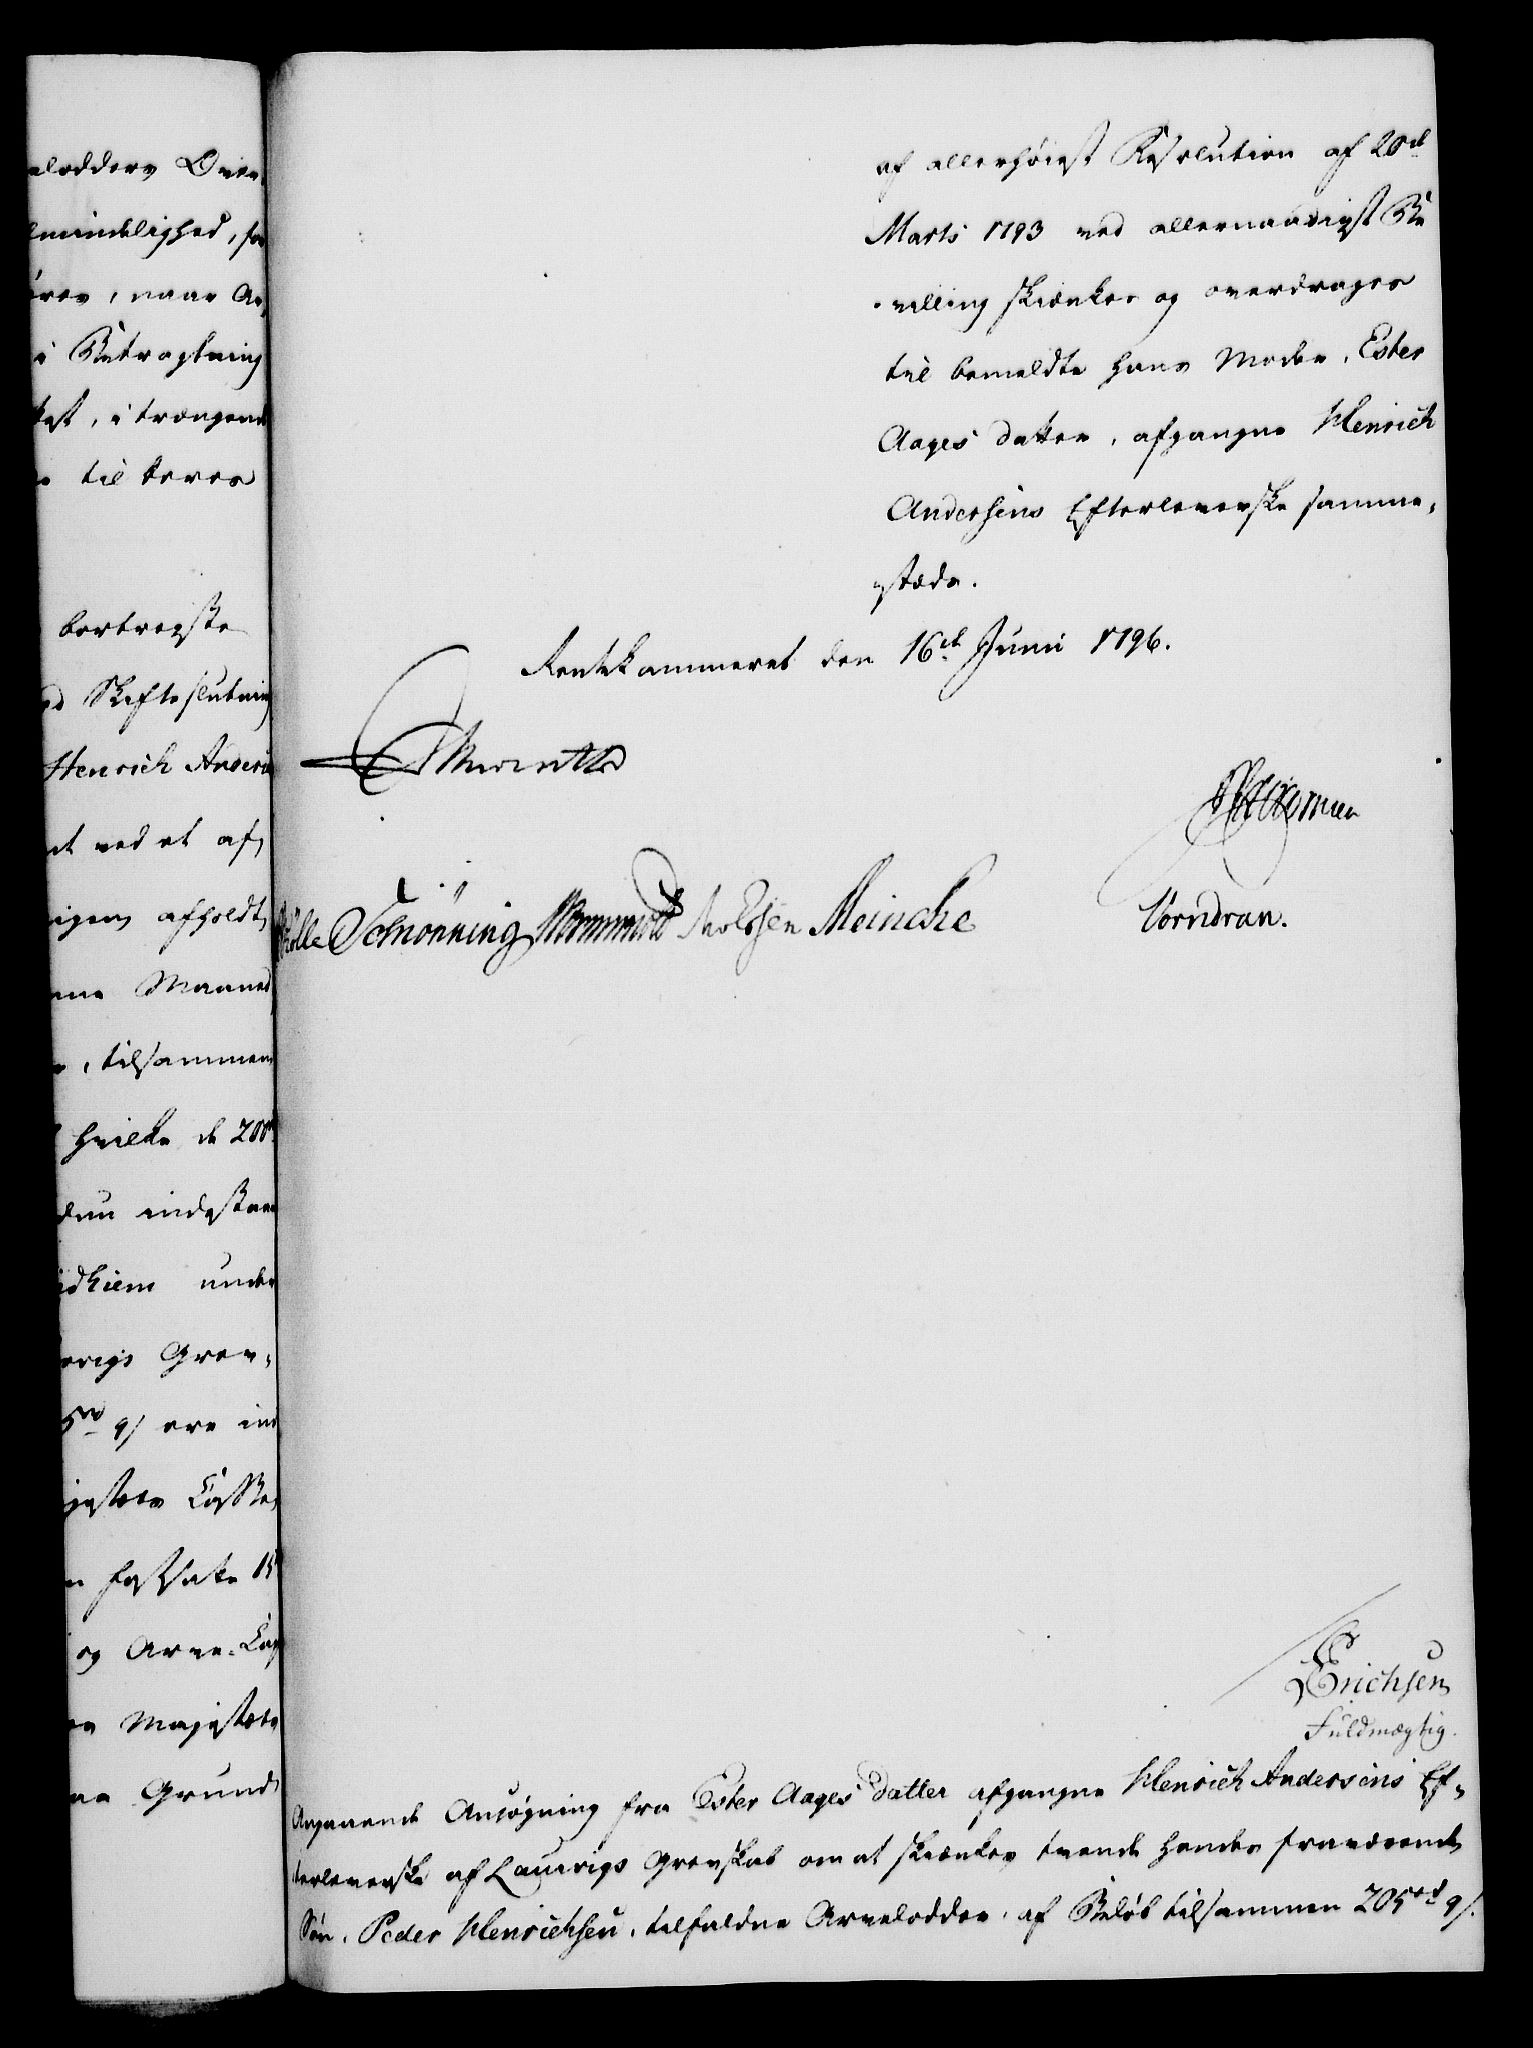 elodders Over
lmindelighed, for
øres, naar An
i Betragtning
kast, i trængende
til deres
bortreyste
ved Skifteslutning
Henrich Anders
et ved et af
igen afholdt
Maaned
, tilsammen
hvilke de 200
indestaae
idhiem under
rvigs Grev-
5rd 9s ere ind
jestæts Casse
fastsatte 15
og Arve-Cas
Majestæts
Grund
af allerhøiest Resolution af 20de
Marts 1793 ved allernaadigst Be
villing skienkes og overdrages
til bemeldte hans Moder, Ester
Aages datter, afgangne Henrich
Andersens Efterleverske samme-
stæds.
Rentekammeret den 16de Junii 1796.
Schønning Wormskiold Meincke
Vorndran.
Erichsen
Fuldmægtig.
Angaaende Ansøgning fra Ester Aages Datter afgangne Henrich Andersens Ef-
terleverske af Laurvigs Grevskab om at skienkes tvende hendes fraværende
Søn, Peder Henrichsen, tilfaldne Arvelodder, af Beløb tilsammen 205rd 9s.